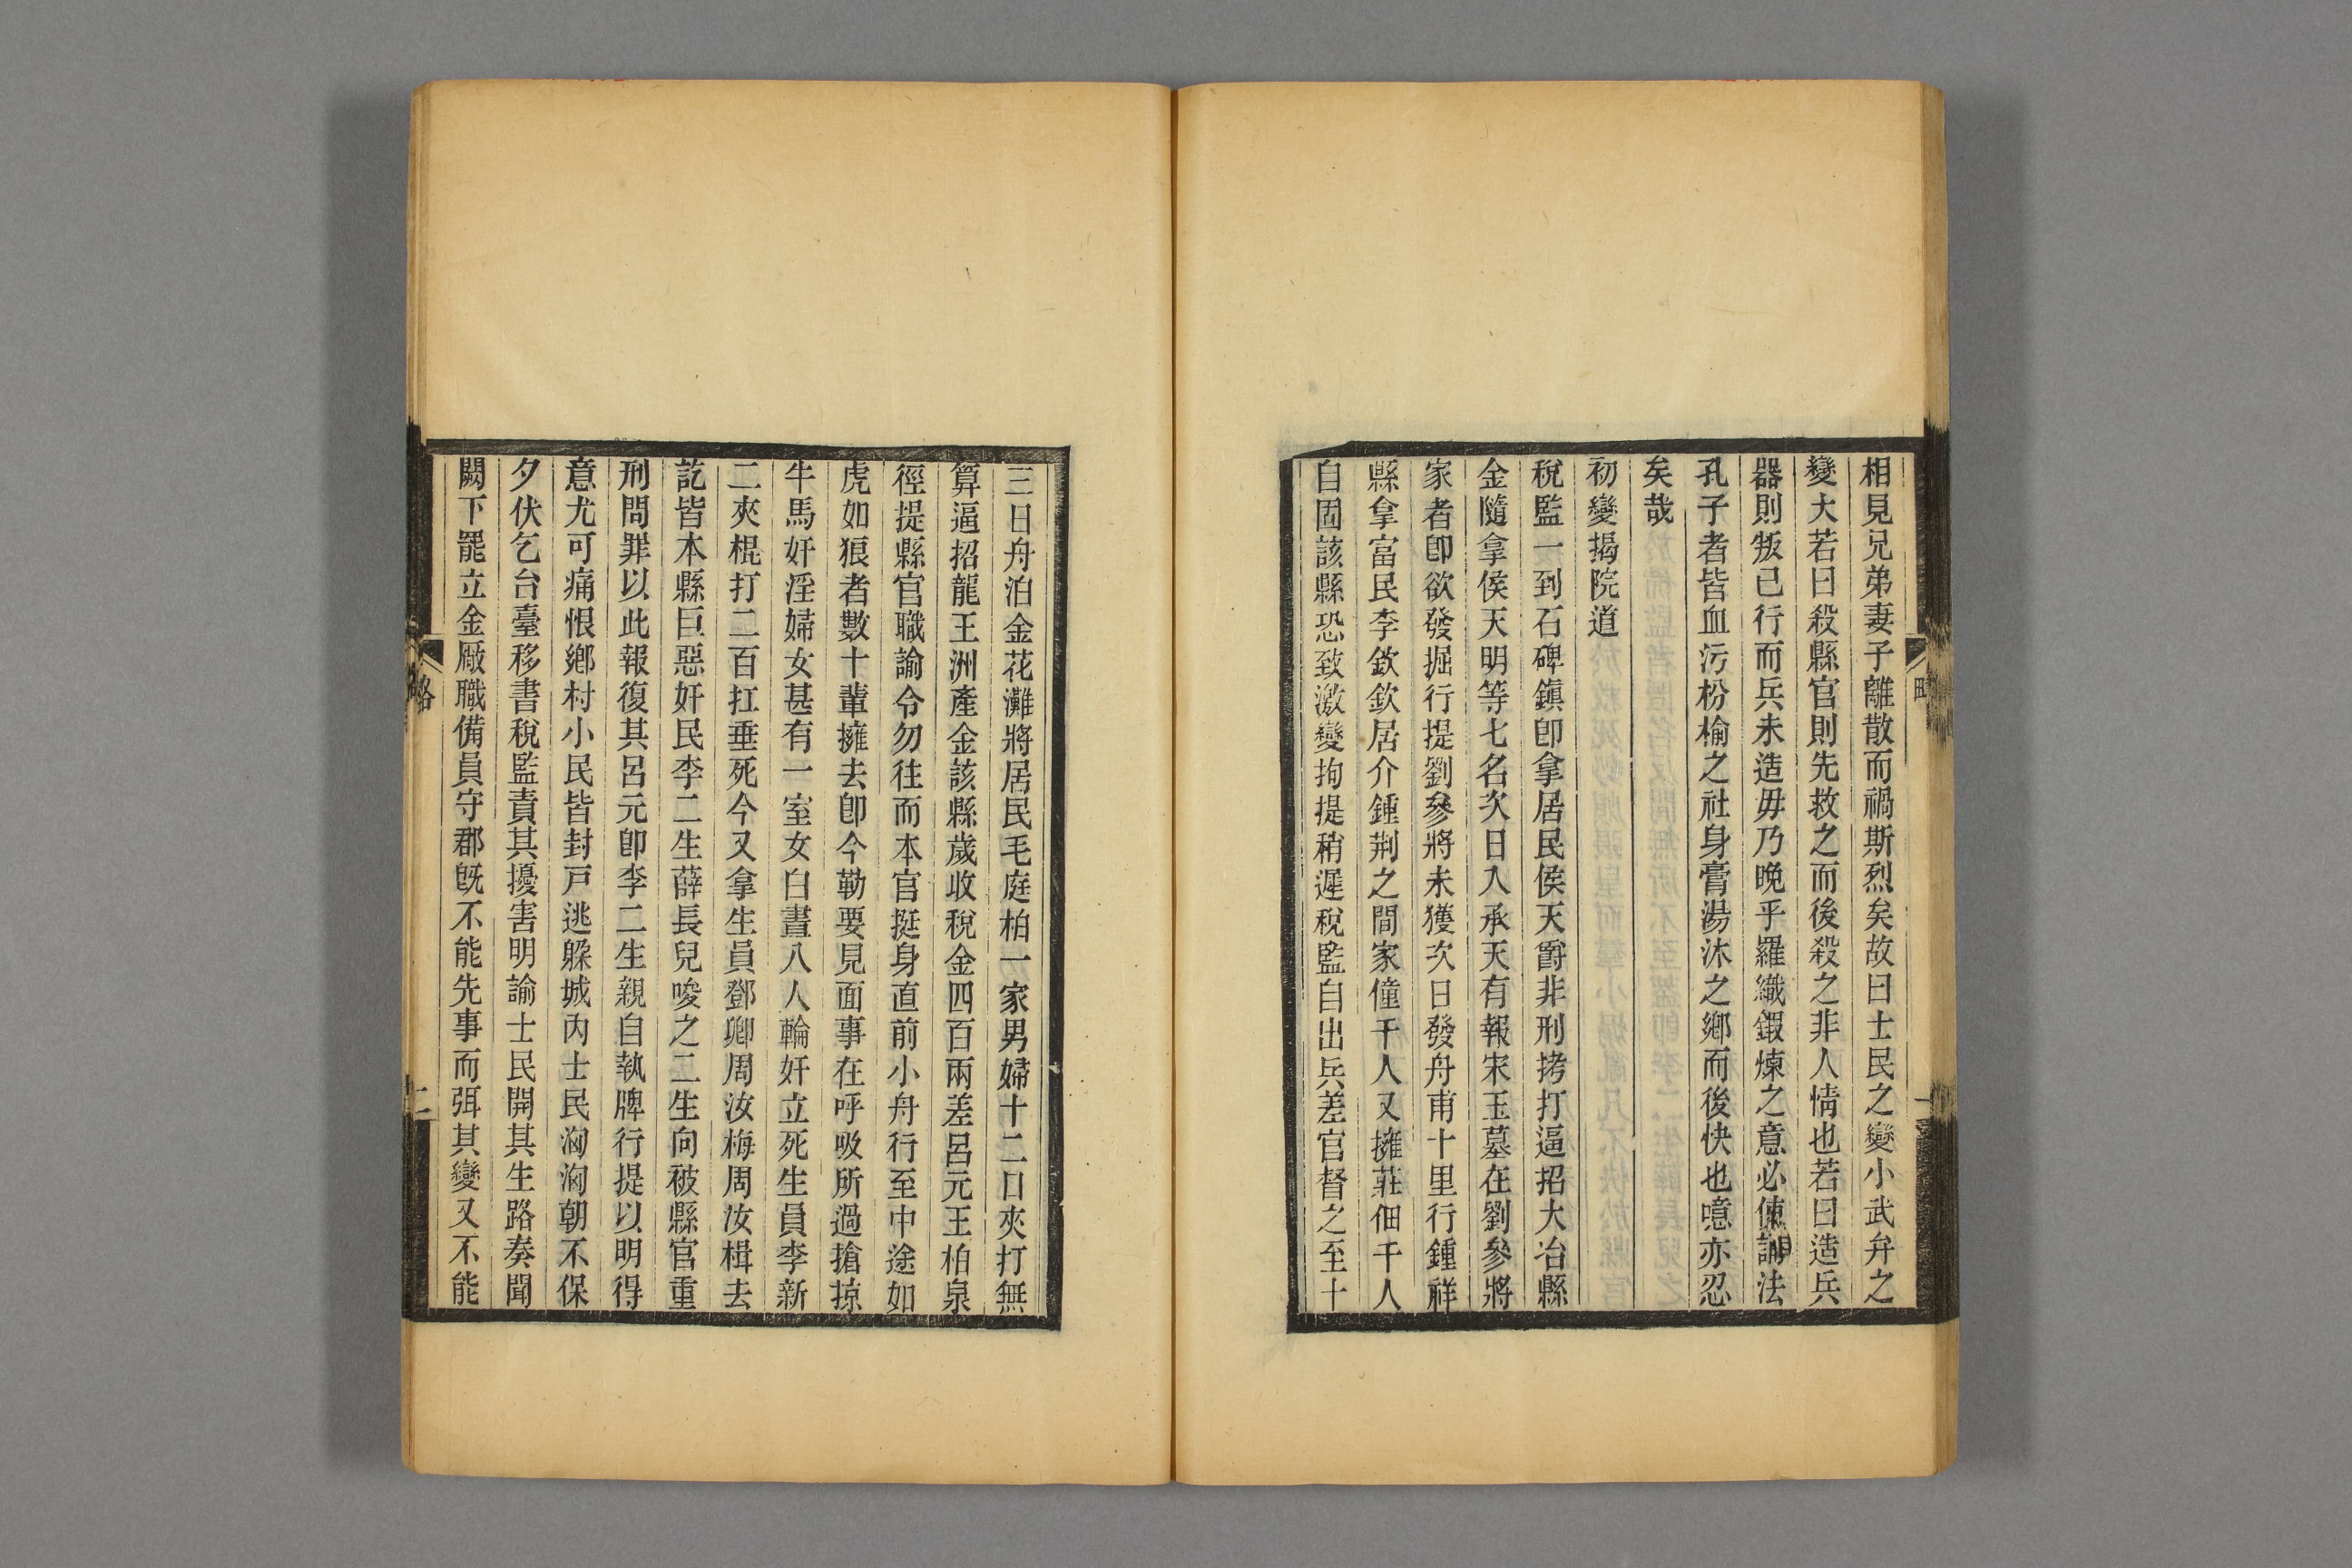 相見兄弟妻子離散而禍斯烈矣故曰士民之變小武弁之
變大若曰殺縣官則先救之而後殺之非人情也若曰造兵
器則叛已行而兵未造毋乃晚乎羅織鍜煉之意必使謝法
孔子者皆血污枌榆之社身膏湯沐之鄉而後快也噫亦忍
矣哉
初變揭院道
稅監一到石碑鎮卽拿居民侯天爵非刑拷打逼招大冶縣
金隨拿侯天明等七名次日入承天有報宋玉墓在劉參將
家者卽欲發掘行提劉參將未獲次日發舟甫十里行鍾祥
縣拿富民李欽欽居介鍾荆之間家僮千人又擁莊佃千人
自固該縣恐致激變拘提稍遲稅監自出兵差官督之至十
三日舟泊金花灘將居民毛庭柏一家男婦十二口夾打無
算逼招龍王洲產金該縣歲收稅金四百兩差呂元王柏泉
徑提縣官職諭令勿往而本官挺身直前小舟行至中途如
虎如狼者數十輩擁去卽今勒要見面事在呼吸所過搶掠
牛馬奸淫婦女甚有一室女白晝八人輪奸立死生員李新
二夾棍打二百扛垂死今又拿生員鄧卿周汝梅周汝楫去
訖皆本縣巨惡奸民李二生薛長兒唆之二生向被縣官重
刑問罪以此報復其呂元卽李二生親自執牌行提以明得
意尤可痛恨鄉村小民皆封戸逃躱城內士民洶洶朝不保
夕伏乞台臺移書稅監責其擾害明諭士民開其生路奏聞
闕下罷立金厰職備員守郡旣不能先事而弭其變又不能
略
二